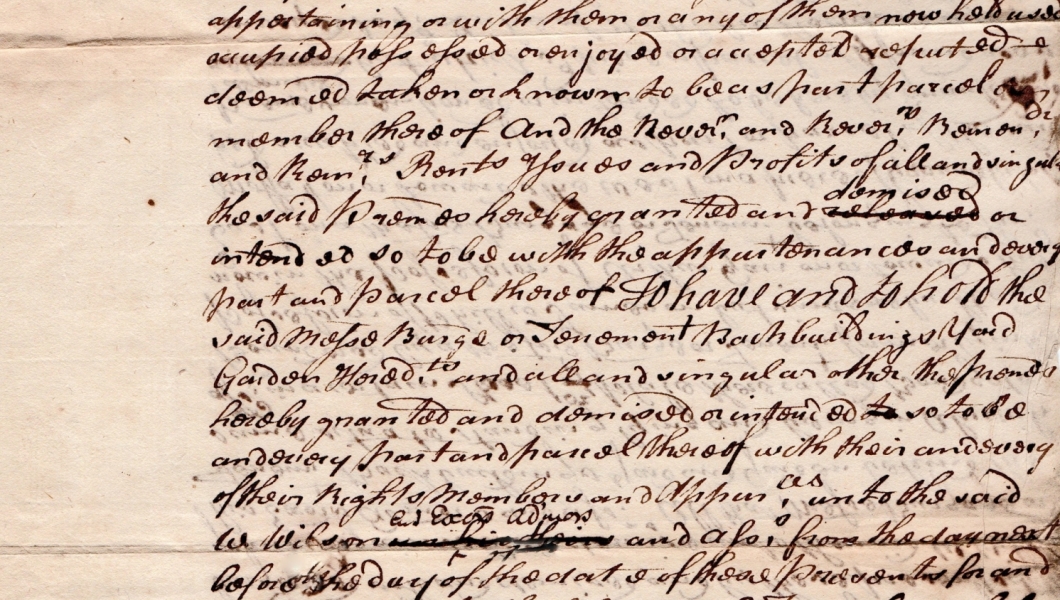 appertaining or with them or any of them now held used
occupied possessed or enjoyed or accepted reputed
deemed taken or known to be as part parcel or
member thereof And the Rever.ⁿ and Rever.ⁿˢ Remen.ᵈʳ
and Rem.ʳˢ Rents Issues and Profits of all and singular
the said Prem̄es hereby granted and demised released or
intended so to be with the appurtenances and every
part and parcel thereof To have and to hold the
said Messe Burge or Tenement Backbuildings Yard
Garden Hered.ᵗˢ and all and singular other the premes
hereby granted and demised or intended to so to be
and every part and parcel thereof with their and every
of their Rights Members and Appur.ᶜᵉˢ unto the said
W Wilson Exors Admors and Ass.ˢ from the day next
before the day of the date of these Presents for and